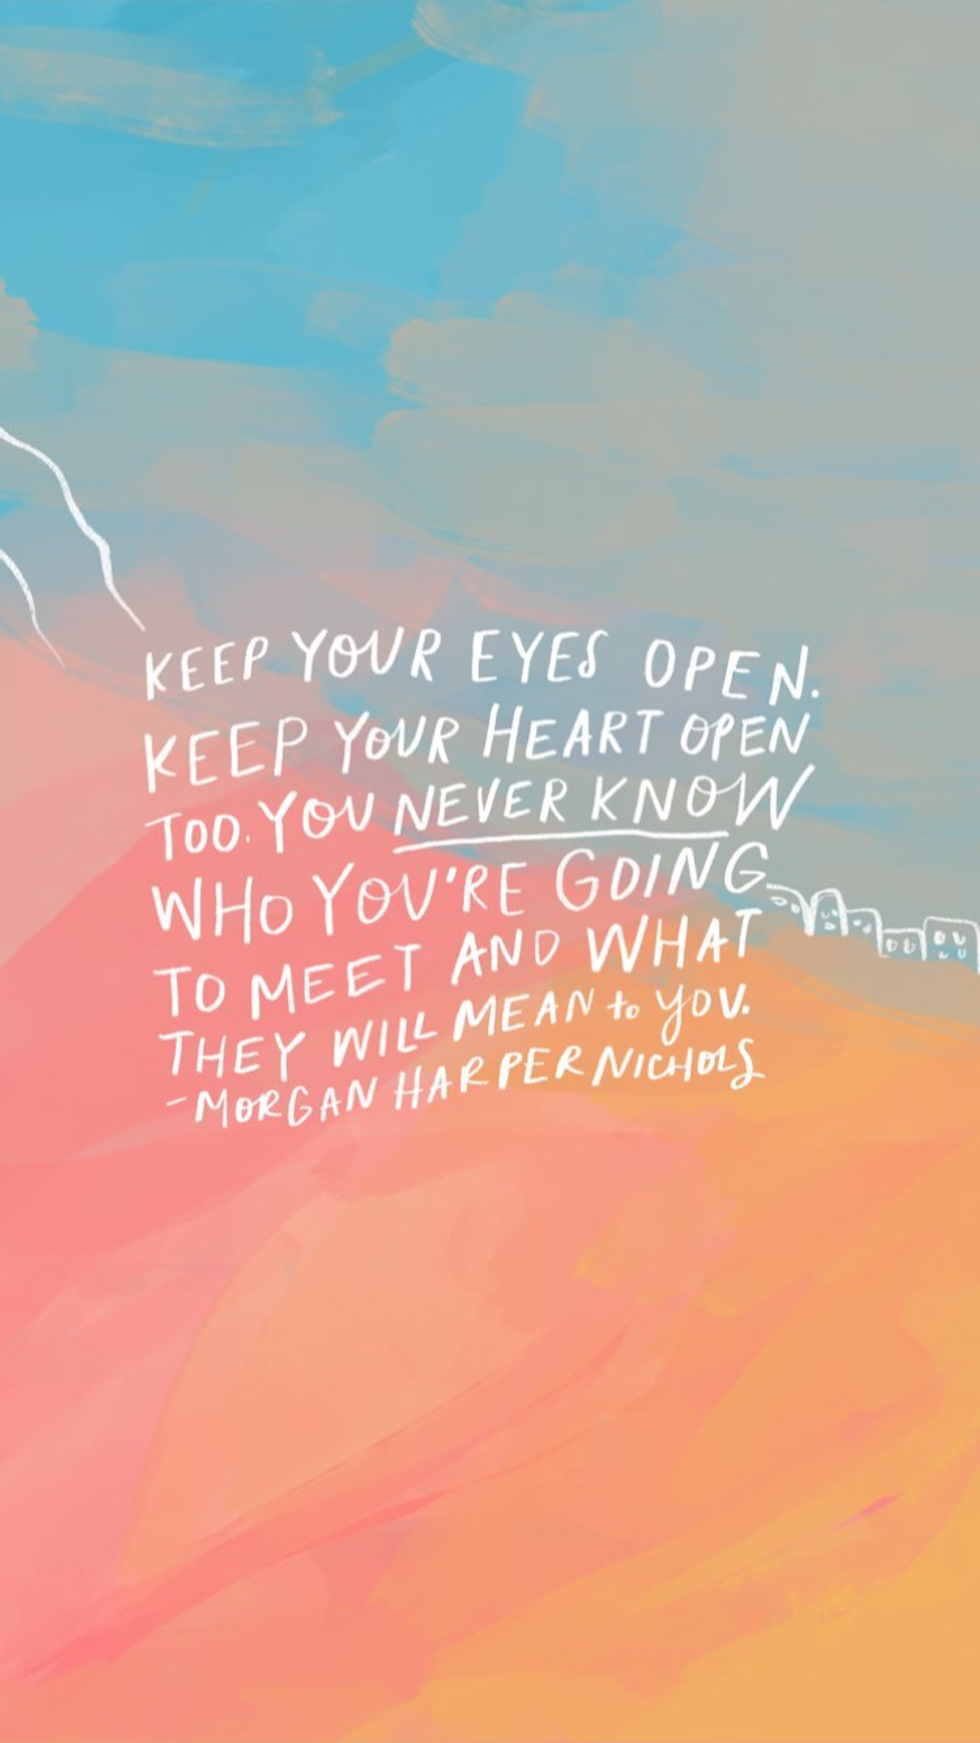 KEEP YOUR EYES OPEN.
KEEP YOUR HEART OPEN
TOO. YOU NEVER KNOW
WHO YOU'RE GOING
TO MEET AND WHAT
THEY WILL MEAN to YOU.
-MORGAN HARPER NICHOLS